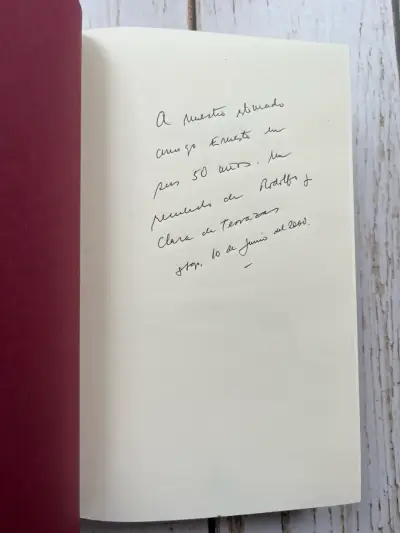 A nuestro estimado
amigo Ernesto en
sus 50 años. Un
recuerdo de Rodolfo y
Clara de Terrazas
Stgo, 10 de Junio del 2000.